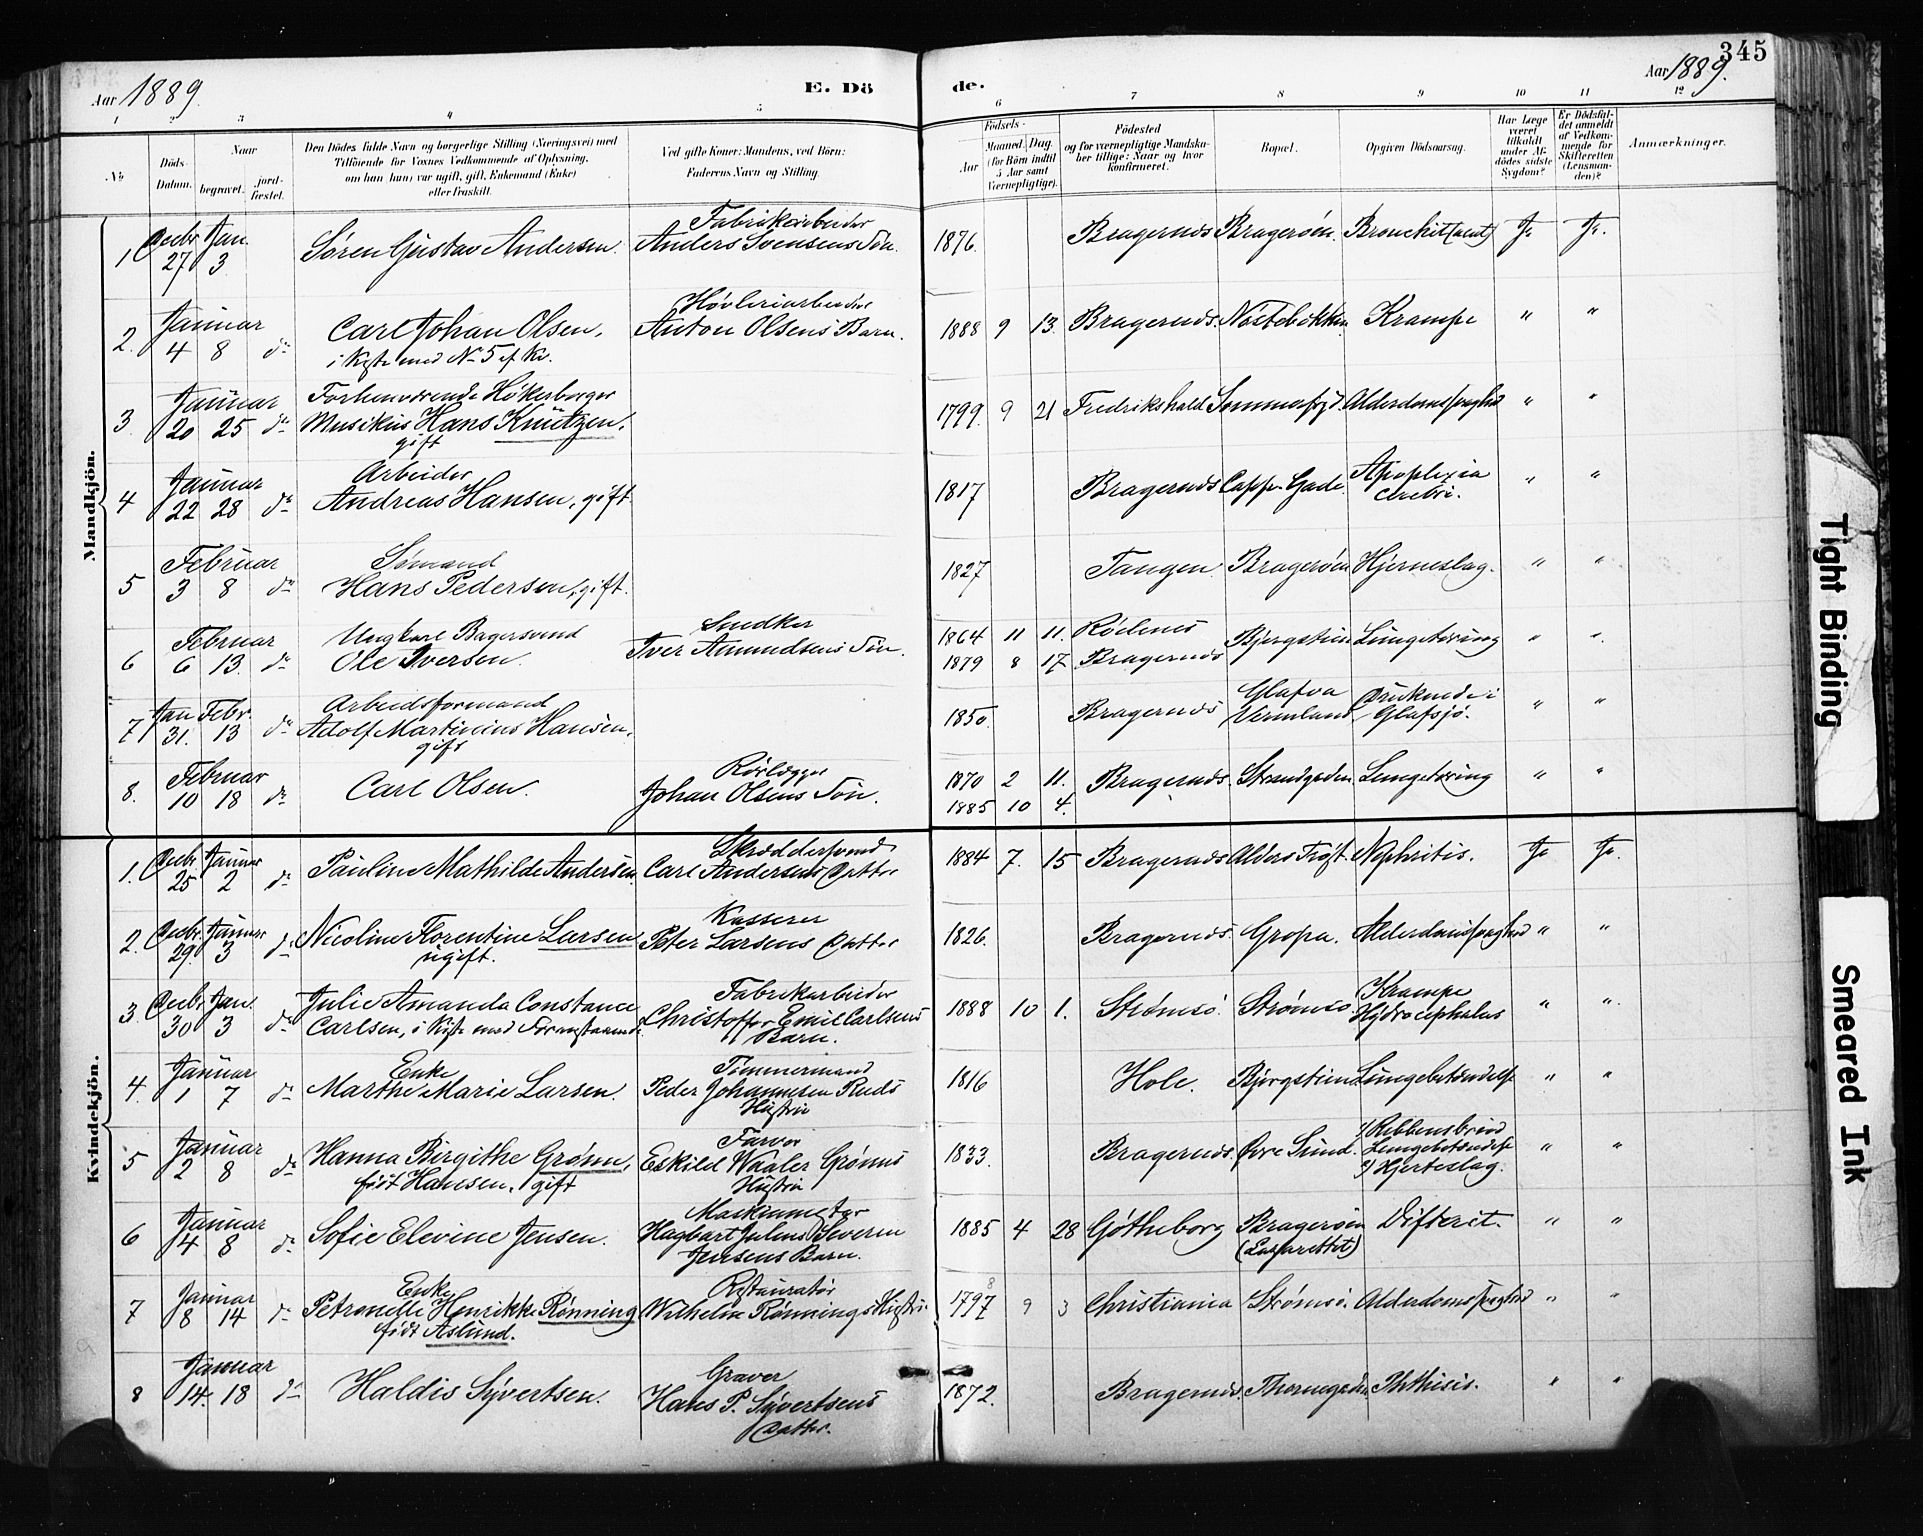 345
Aar 1889.
E. Dö
de.
Aar 1889.
1 2 3 4 5 6 7 8 9 10 11 12
No
Döds-Datum.
Naar
begravet.
jord-fæstet.
Den Dödes fulde Navn og borgerlige Stilling (Næringsvei) med
Tilföiende for Voxnes Vedkommende af Oplysning,
om han (hun) var ugift, gift, Enkemand (Enke)
eller fraskilt.
Ved gifte Koner: Mandens, ved Börn:
Faderens Navn og Stilling.
Födsels-
Aar
Maaned. Dag.
(for Börn indtil
5 Aar samt
Værnepligtige).
Födested
og for værnepligtige Mandska-
ber tillige: Naar og hvor
konfirmeret.
Bopæl.
Opgiven Dödsaarsag.
Har Læge
været
tilkaldt
under Af-
dödes sidste
Sygdom?
Er Dödsfal-
det anmeldt
af Vedkom-
mende for
Skifteretten
(Lensman-
den)?
Anmærkninger.
Mandkjön.
1 Decbr 27 Jan. 3 Søren Gustav Andersen. Fabrikarbeider Anders Svensens Søn. 1876. Bragernæs Bragerøen. Bronchit (acut) Ja Ja.
2. Januar 4 8 do Carl Johan Olsen, i Kiste med No 5 af Kv. Høvleriarbeider Anton Olsens Barn. 1888 9 13. Bragernæs. Nøstebækken Krampe " "
3 Januar 20 25 do Forhenværende Høkerborger Musikus Hans Knutzen, gift 1799. 9 21 Fredrikshald Sommerfryd. Alderdomssvaghed " "
4 Januar 22 28 do Arbeider Andreas Hansen, gift 1817 Bragernæs Capp. Gade. Apoplexia cerebri. " "
5 Februar 3 8 do Sømand Hans Pedersen, gift. 1827 Tangen. Bragerøen Hjerneslag. " "
6 Februar 6 13. do Ungkarl Bagersvend Ole Iversen. Snedker Iver Amundsens Søn. 1864 11 11. 1879 8 17 Rødenes Bragernæs Bjergstien Lungetæring " "
7 Jan 31. Febr. 13 do Arbeidsformand Adolf Martinius Hansen, gift 1850. Bragernæs Glafva Vermland Druknede i Glafsjø. " "
8. Februar 10 18 do Carl Olsen. Rørlægger Johan Olsens Søn. 1870 2 11. 1885 10 4. Bragernæs. Strandgaden. Lungetæring " "
Kvindekjön.
1. Decbr 25 Januar 2 do Pauline Mathilde Andersen. Skræddersvend Carl Andersens Datter 1884 7. 15 Bragernæs Alders Trøst. Nephritis. Ja Ja.
2. Decbr. 29. Januar 3 do Nicoline Florentine Larsen ugift. Kasserer Peter Larsens Datter 1826. Bragernæs. Gropa. Alderdomssvaghed " "
3. Decbr. 30 Jan. 3 do Julie Amanda Constance Carlsen, i Kiste med Foranstaaende. Fabrikarbeider Christoffer Emil Carlsens Barn. 1888 10 1. Strømsø. Strømsø. Krampe Hydrocephalus " "
4. Januar 1 7 do Enke Marthe Marie Larsen. Tømmermand Peder Johannesen Ruds Hustru 1816 Hole. Bjergstien Lungebetændelse " "
5 Januar 2 8 do Hanna Birgithe Grønn, født Hansen, gift Farver Eskild Waaler Grønns Hustru 1833. Bragernæs Øvre Sund. 1) Ribbensbrud Lungebetændelse 2) Hjerteslag. " "
6 Januar 4 8 do Sofie Elevine Jensen. Maskinmester Hagbart Julius Severin Jensens Barn. 1885 4 28 Gøtheborg Bragerøen (Lazarettet) Difterit. " "
7 Januar 8 14 do Enke Petronelle Henrikke Rønning født Aslund. Restauratør Wilhelm Rønnings Hustru 1797 8 9 3 Christiania Strømsø. Alderdomssvaghed " "
8 Januar 14. 18 do Haldis Syvertsen. Graver Hans P. Syvertsens Datter. 1872. Bragernæs. Thornegaden Phthisis. " "
Tight Binding
Smeared Ink